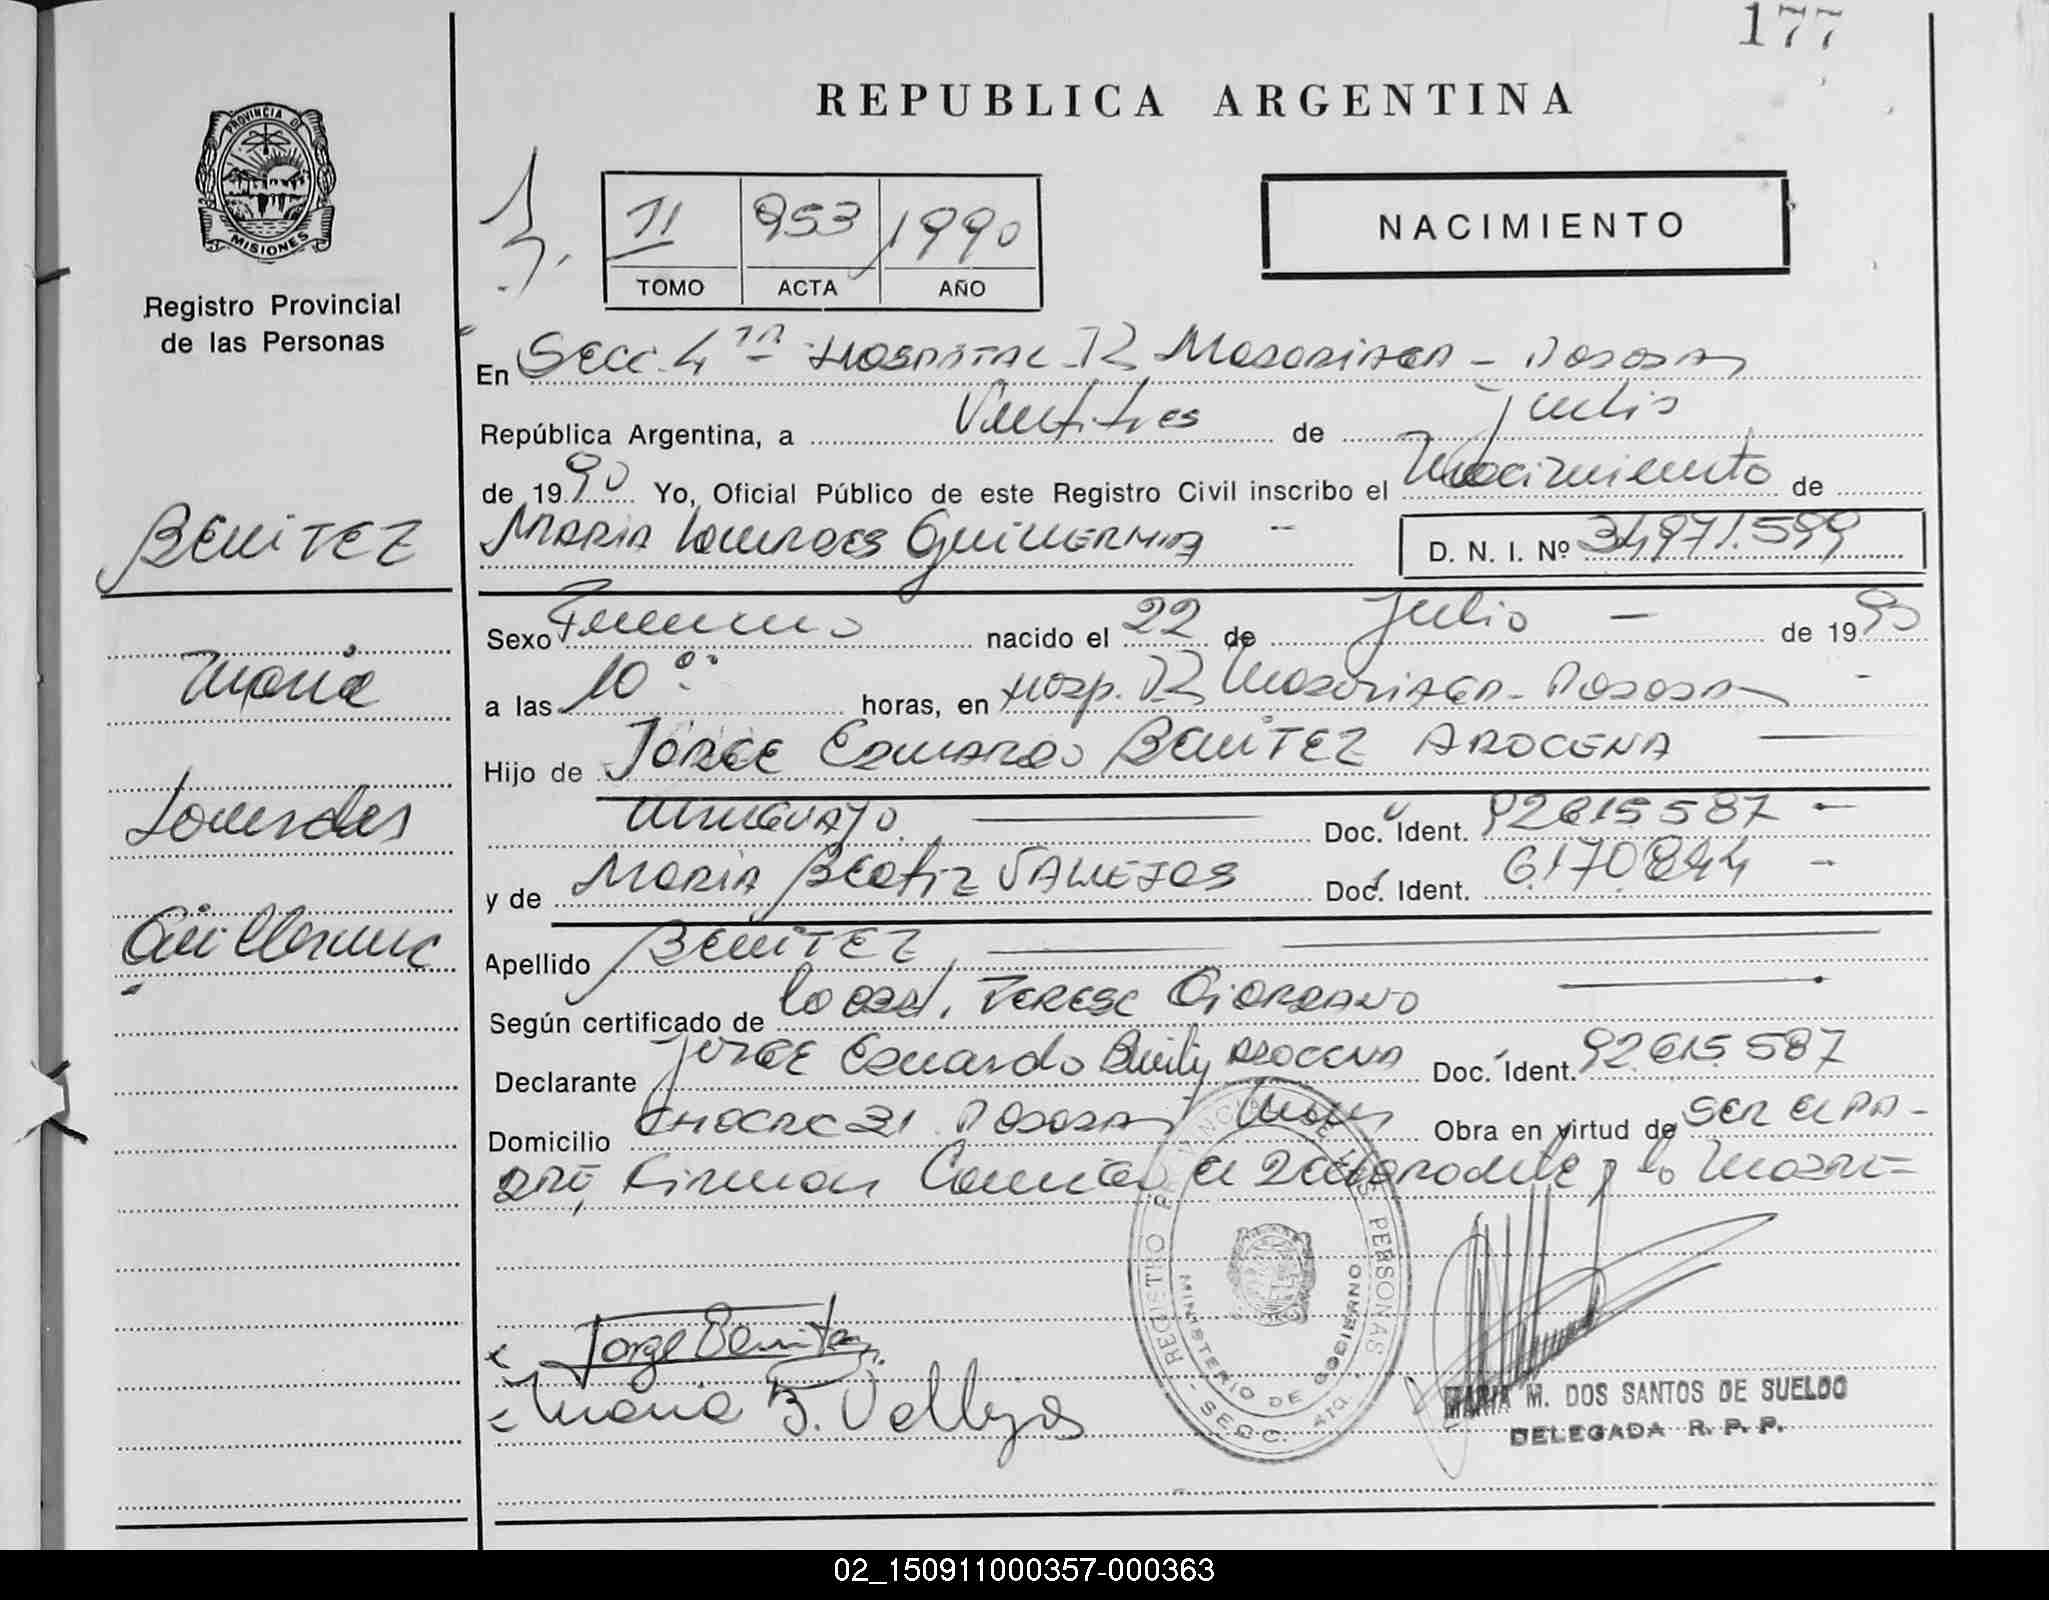 177
REPUBLICA ARGENTINA
PROVINCIA DE
MISIONES
Registro Provincial
de las Personas
II 953 1990
TOMO ACTA AÑO
NACIMIENTO
En Secc. 4ta Hospital Dr Madariaga - Posadas
República Argentina, a Veintitres de julio
de 1990 Yo, Oficial Público de este Registro Civil inscribo el Nacimiento de
BENITEZ
MARIA Lourdes GUILLERMINA - D. N. I. Nº 34971.599
Sexo Femenino nacido el 22 de Julio - de 1990
Maria
a las 10 horas, en Hosp. Dr Madariaga - Posadas -
Hijo de JORGE EDUARDO BENITEZ AROCENA
Lourdes
uruguayo. Doc. Ident. 92615587 -
y de MARIA Beatriz VALLEJOS Doc. Ident. 6170844 -
Guillermina
Apellido BENITEZ
Según certificado de la obst. TERESA GIORDANO
Declarante JORGE Eduardo Benitez AROCENA Doc. Ident. 92.615.587
Domicilio CHACRA 31 POSADAS Mnes Obra en virtud de SER EL PA-
DRE, Firman Conmigo el Declarante y la Madre=
Jorge Benitez
Maria B. Vallejos
REGISTRO PROVINCIAL DE LAS PERSONAS
MINISTERIO DE GOBIERNO
- SECC. 4TA. -
MARIA M. DOS SANTOS DE SUELDO
DELEGADA R. P. P.
02_150911000357-000363